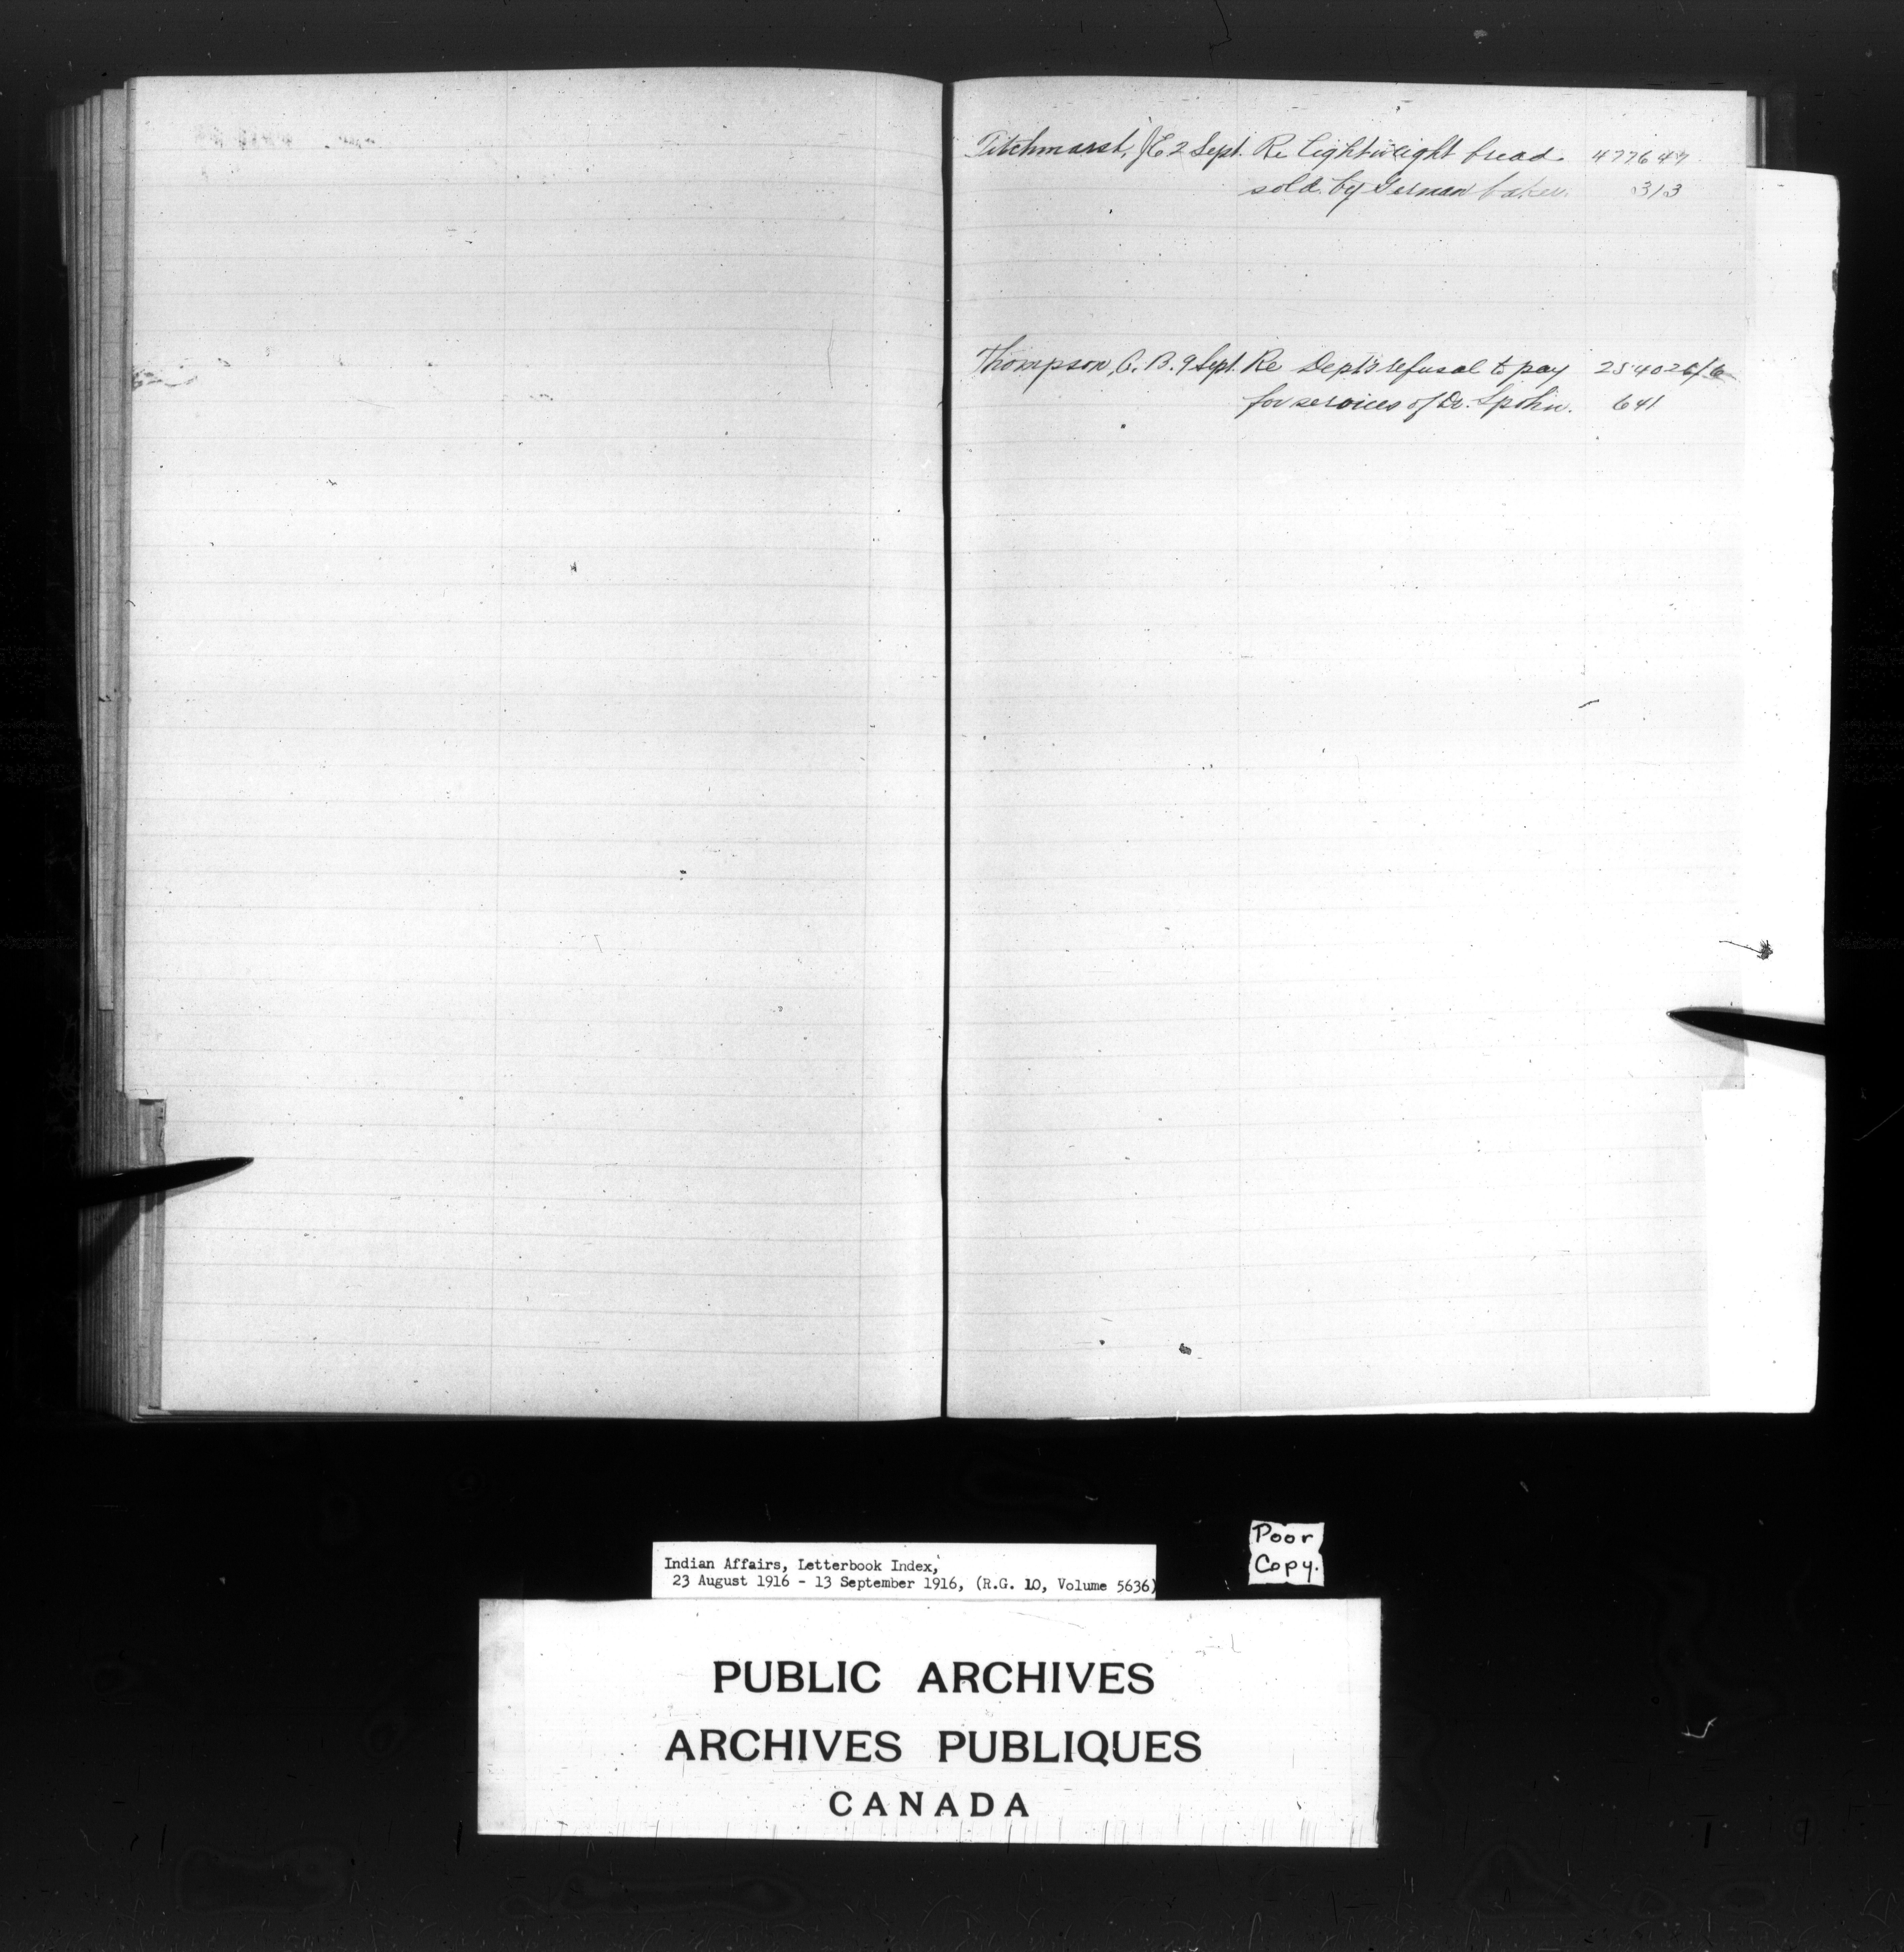 Titchmarst, J E 2 Sept. Re lightweight bread 477647
sold by German baker. 313
Thompson, C. B. 9 Sept. Re Dept's refusal to pay 254026/6
for services of Dr. Spohn. 641
Indian Affairs, Letterbook Index,
23 August 1916 - 13 September 1916, (R.G. 10, Volume 5636)
Poor
Copy.
PUBLIC ARCHIVES
ARCHIVES PUBLIQUES
CANADA